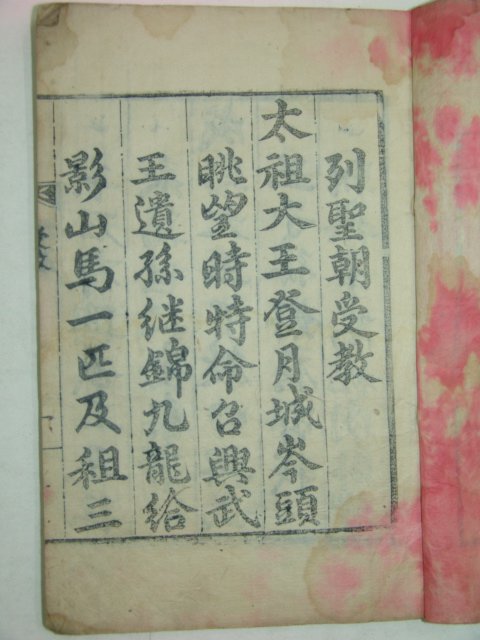 列聖朝受教
太祖大王登月城岑頭
眺望時特命召興武
王遺孫继錦九龍給
影山馬一匹及租三